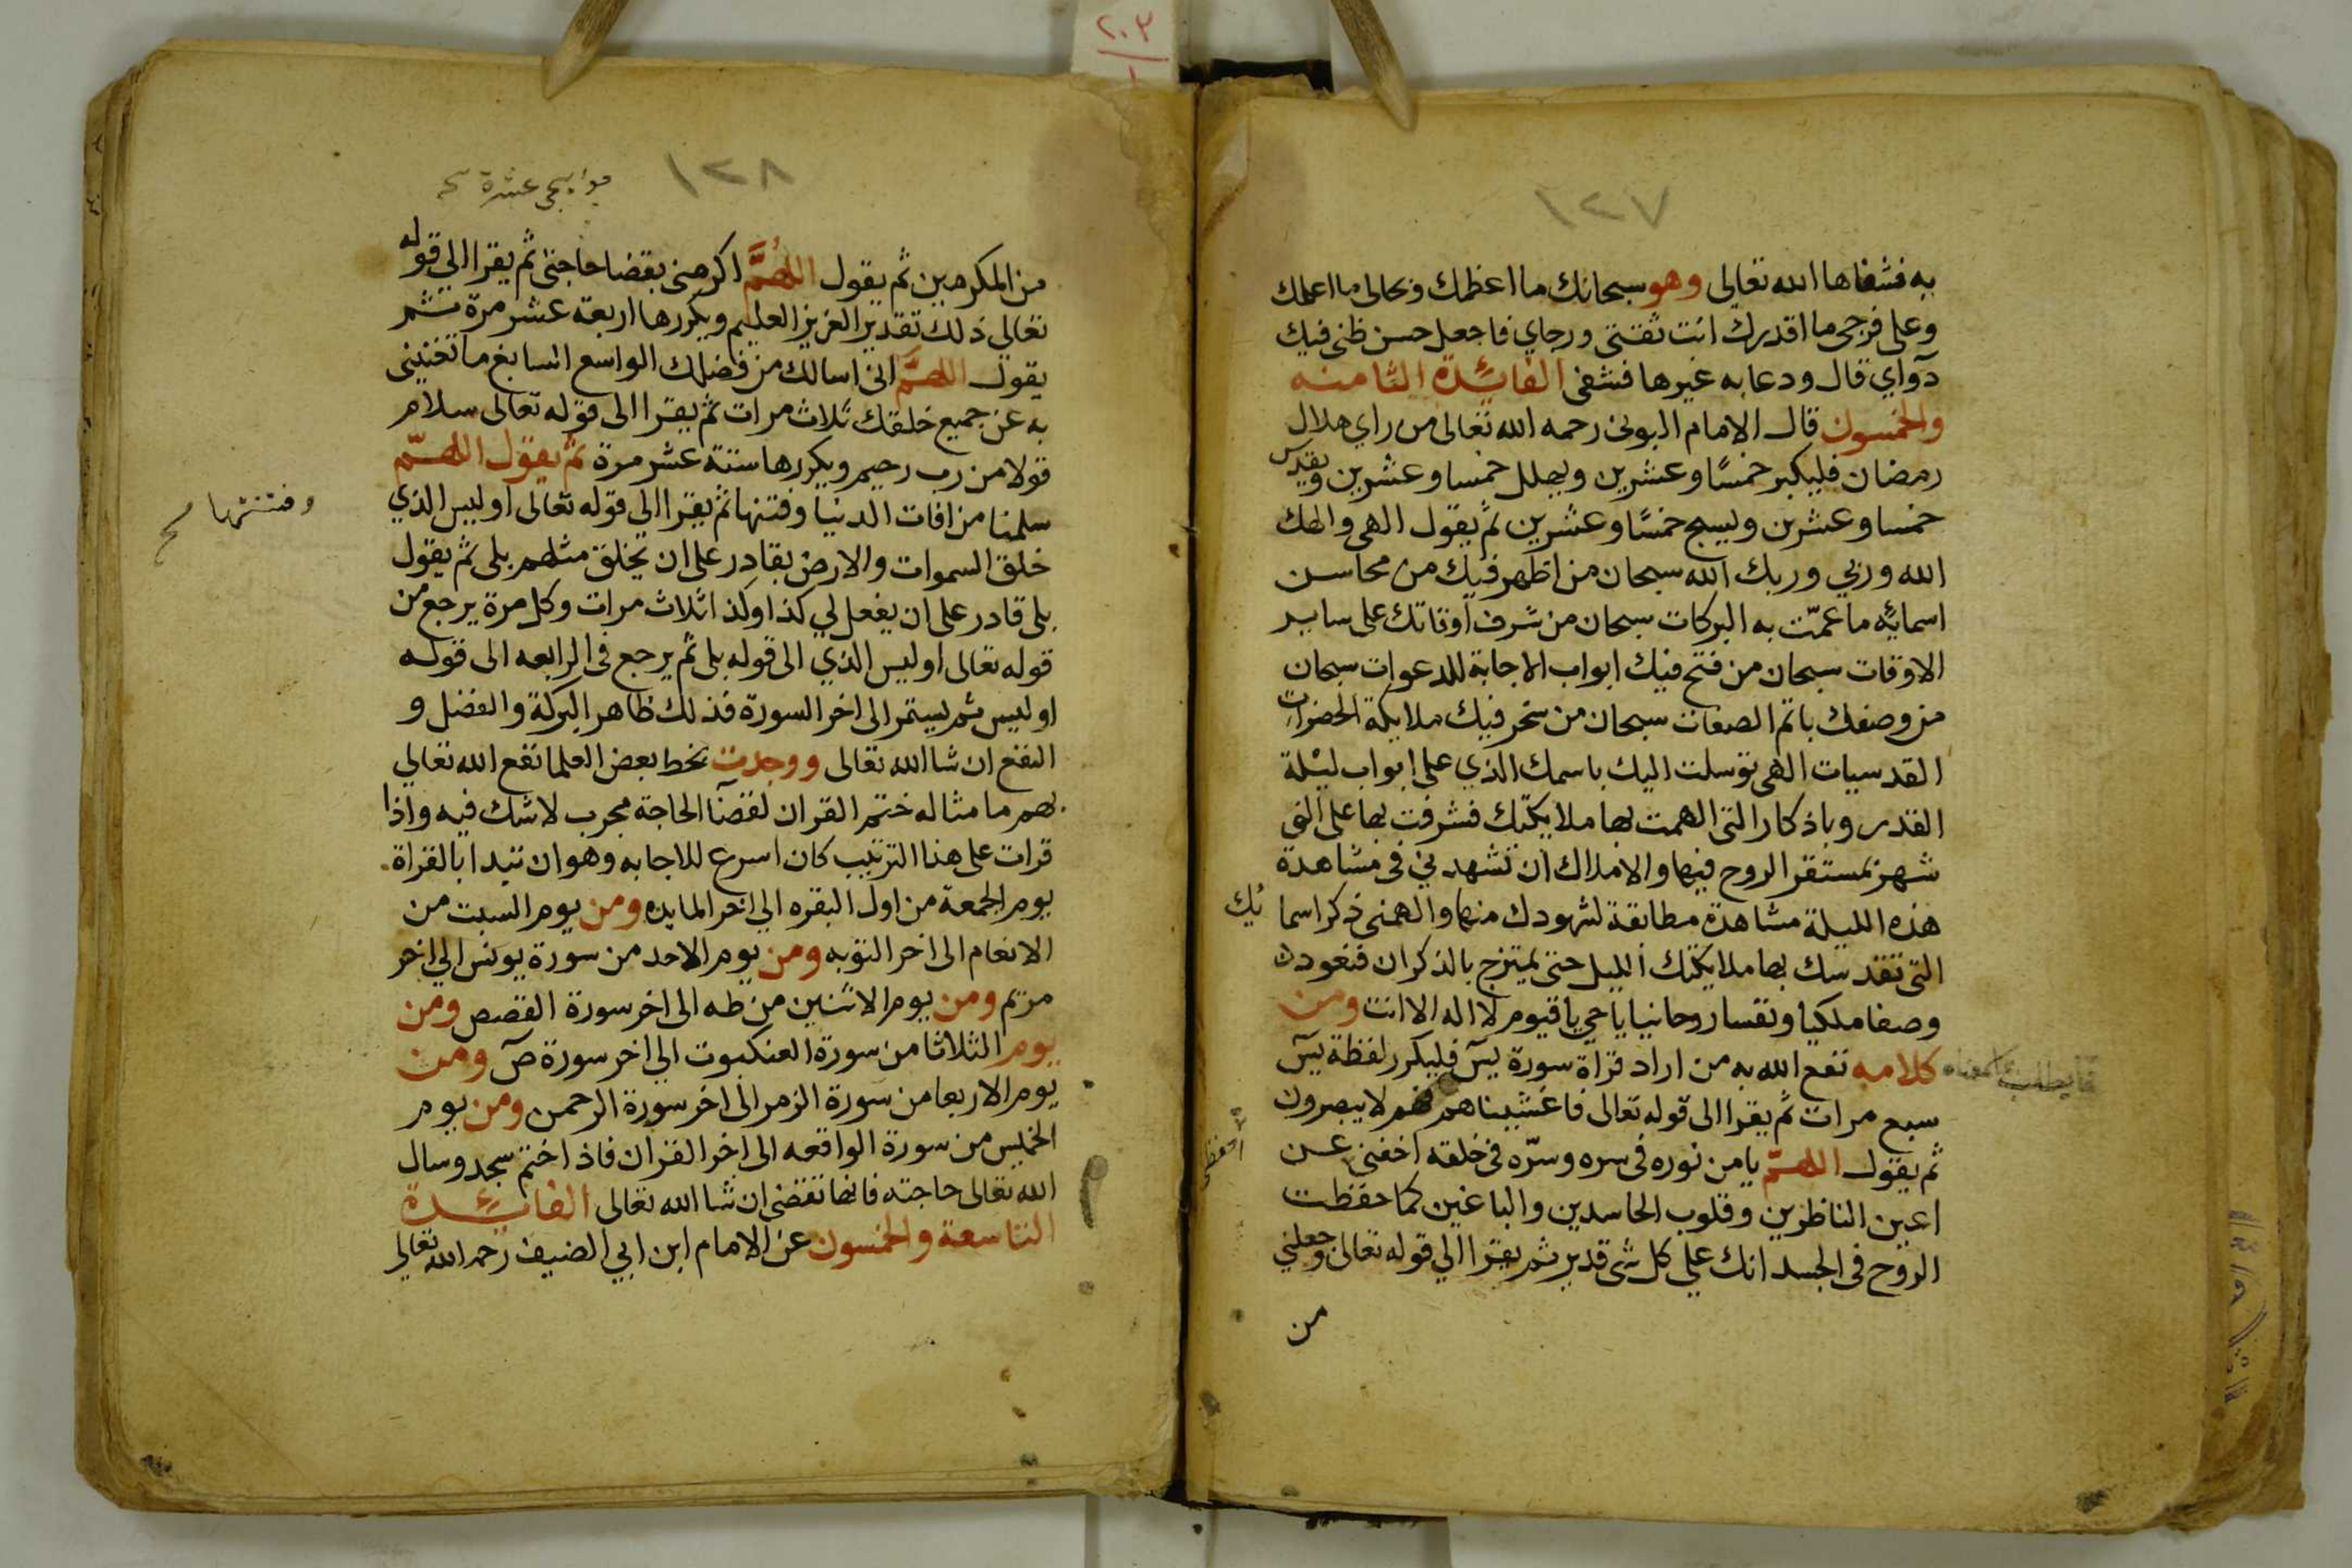 ١٢٧
به فشفاها الله تعالى وهو سبحانك ما اعظمك وبحالى ما اعلمك
وعلى فرجى ما اقدرك انت ثقتى ورجاي فاجعل حسن ظنى فيك
دوآي قال ودعا به غيرها فشفى الفائدة الثامنه
والخمسون قال الامام البونى رحمه الله تعالى من راي هلال
رمضان فليكبر خمسًا وعشرين ويهلل خمسا وعشرين ويقدس
خمسا وعشرن ويسبح خمسًا وعشرين ثم يقول الهى والهك
الله وربي وربك الله سبحان من اظهر فيك من محاسن
اسمايه ما عمّت به البركات سبحان من شرف اوقاتك على ساير
الاوقات سبحان من فتح فيك ابواب الاجابة للدعوات سبحان
من وصفك باتم الصفات سبحان من سخر فيك ملايكة الحضرات
القدسيات الهى توسلت اليك باسمك الذي على ابواب ليلة
القدر وباذكار التى الهمت بها ملايكتك فشرفت بها على الف
شهر بمستقر الروح فيها والاملاك ان تشهدني فى مشاهدة
هذه الليلة مشاهدة مطابقة لشهودك منها والهمنى ذكر اسما
ئك
التى تقدسك بها ملايكتك الليل حتى يمتزج بالذكران فتعود
وصفا ملكيا ونفسا روحانيا ياحي ياقيوم لا اله الا انت ومن
كلامه نفع الله به من اراد قراة سورة يس فليكرر لفظة يس
سبع مرات ثم يقرا الى قوله تعالى فاغشيناهم فهم لا يبصرون
ثم يقول اللهمّ يامن نوره فى سره وسرّه فى خلقه اخفنى عن
اعين الناظرين وقلوب الحاسدين والباغين كما حفظت
الروح فى الجسد انك على كل شى قدير ثم يقرا الى قوله تعالى وجعلني
من
١٢٨
عشرة
من المكرمين ثم يقول اللهُمَّ اكرمنى بقضا حاجتى ثم يقرا الى قوله
تعالى ذلك تقدير العزيز العليم ويكررها اربعة عشر مرة ثم
يقول اللهمَّ انى اسالك من فضلك الواسع السابغ ما تغنينى
به عن جميع خلقك ثلاث مرات ثم يقرا الى قوله تعالى سلام
قولا من رب رحيم ويكررها ستة عشر مرة ثم يقول اللهمّ
سلمنا من افات الدنيا وفتنها ثم يقرا الى قوله تعالى اوليس الذي
وفتنتها صح
خلق السموات والارض بقادر على ان يخلق مثلهم بلى ثم يقول
بلى قادر على ان يفعل لي كذا وكذا ثلاث مرات وكل مرة يرجع من
قوله تعالى اوليس الذي الى قوله بلى ثم يرجع فى الرابعه الى قوله
اوليس ثم يستمر الى اخر السورة فذلك ظاهر البركة والفضل و
النفع ان شا الله تعالى ووجدت بخط بعض العلما نفع الله تعالي
بهم ما مثاله ختم القران لقضآ الحاجة مجرب لا شك فيه واذا
قرات على هذا الترتيب كان اسرع للاجابه وهو ان تبدا بالقراة
يوم الجمعة من اول البقره الى اخر المايده ومن يوم السبت من
الانعام الى اخر التوبه ومن يوم الاحد من سورة يونس الي اخر
مريم ومن يوم الاثنين من طه الى اخر سورة القصص ومن
يوم الثلاثا من سورة العنكبوت الي اخر سورة صٓ ومن
يوم الاربعا من سورة الزمر الى اخر سورة الرحمن ومن يوم
الخميس من سورة الواقعه الى اخر القران فاذا ختم سجد وسال
الله تعالى حاجته فانها تقضى ان شا الله تعالى الفائدة
التاسعة والخمسون عن الامام ابن ابي الضيف رحمه الله تعالى